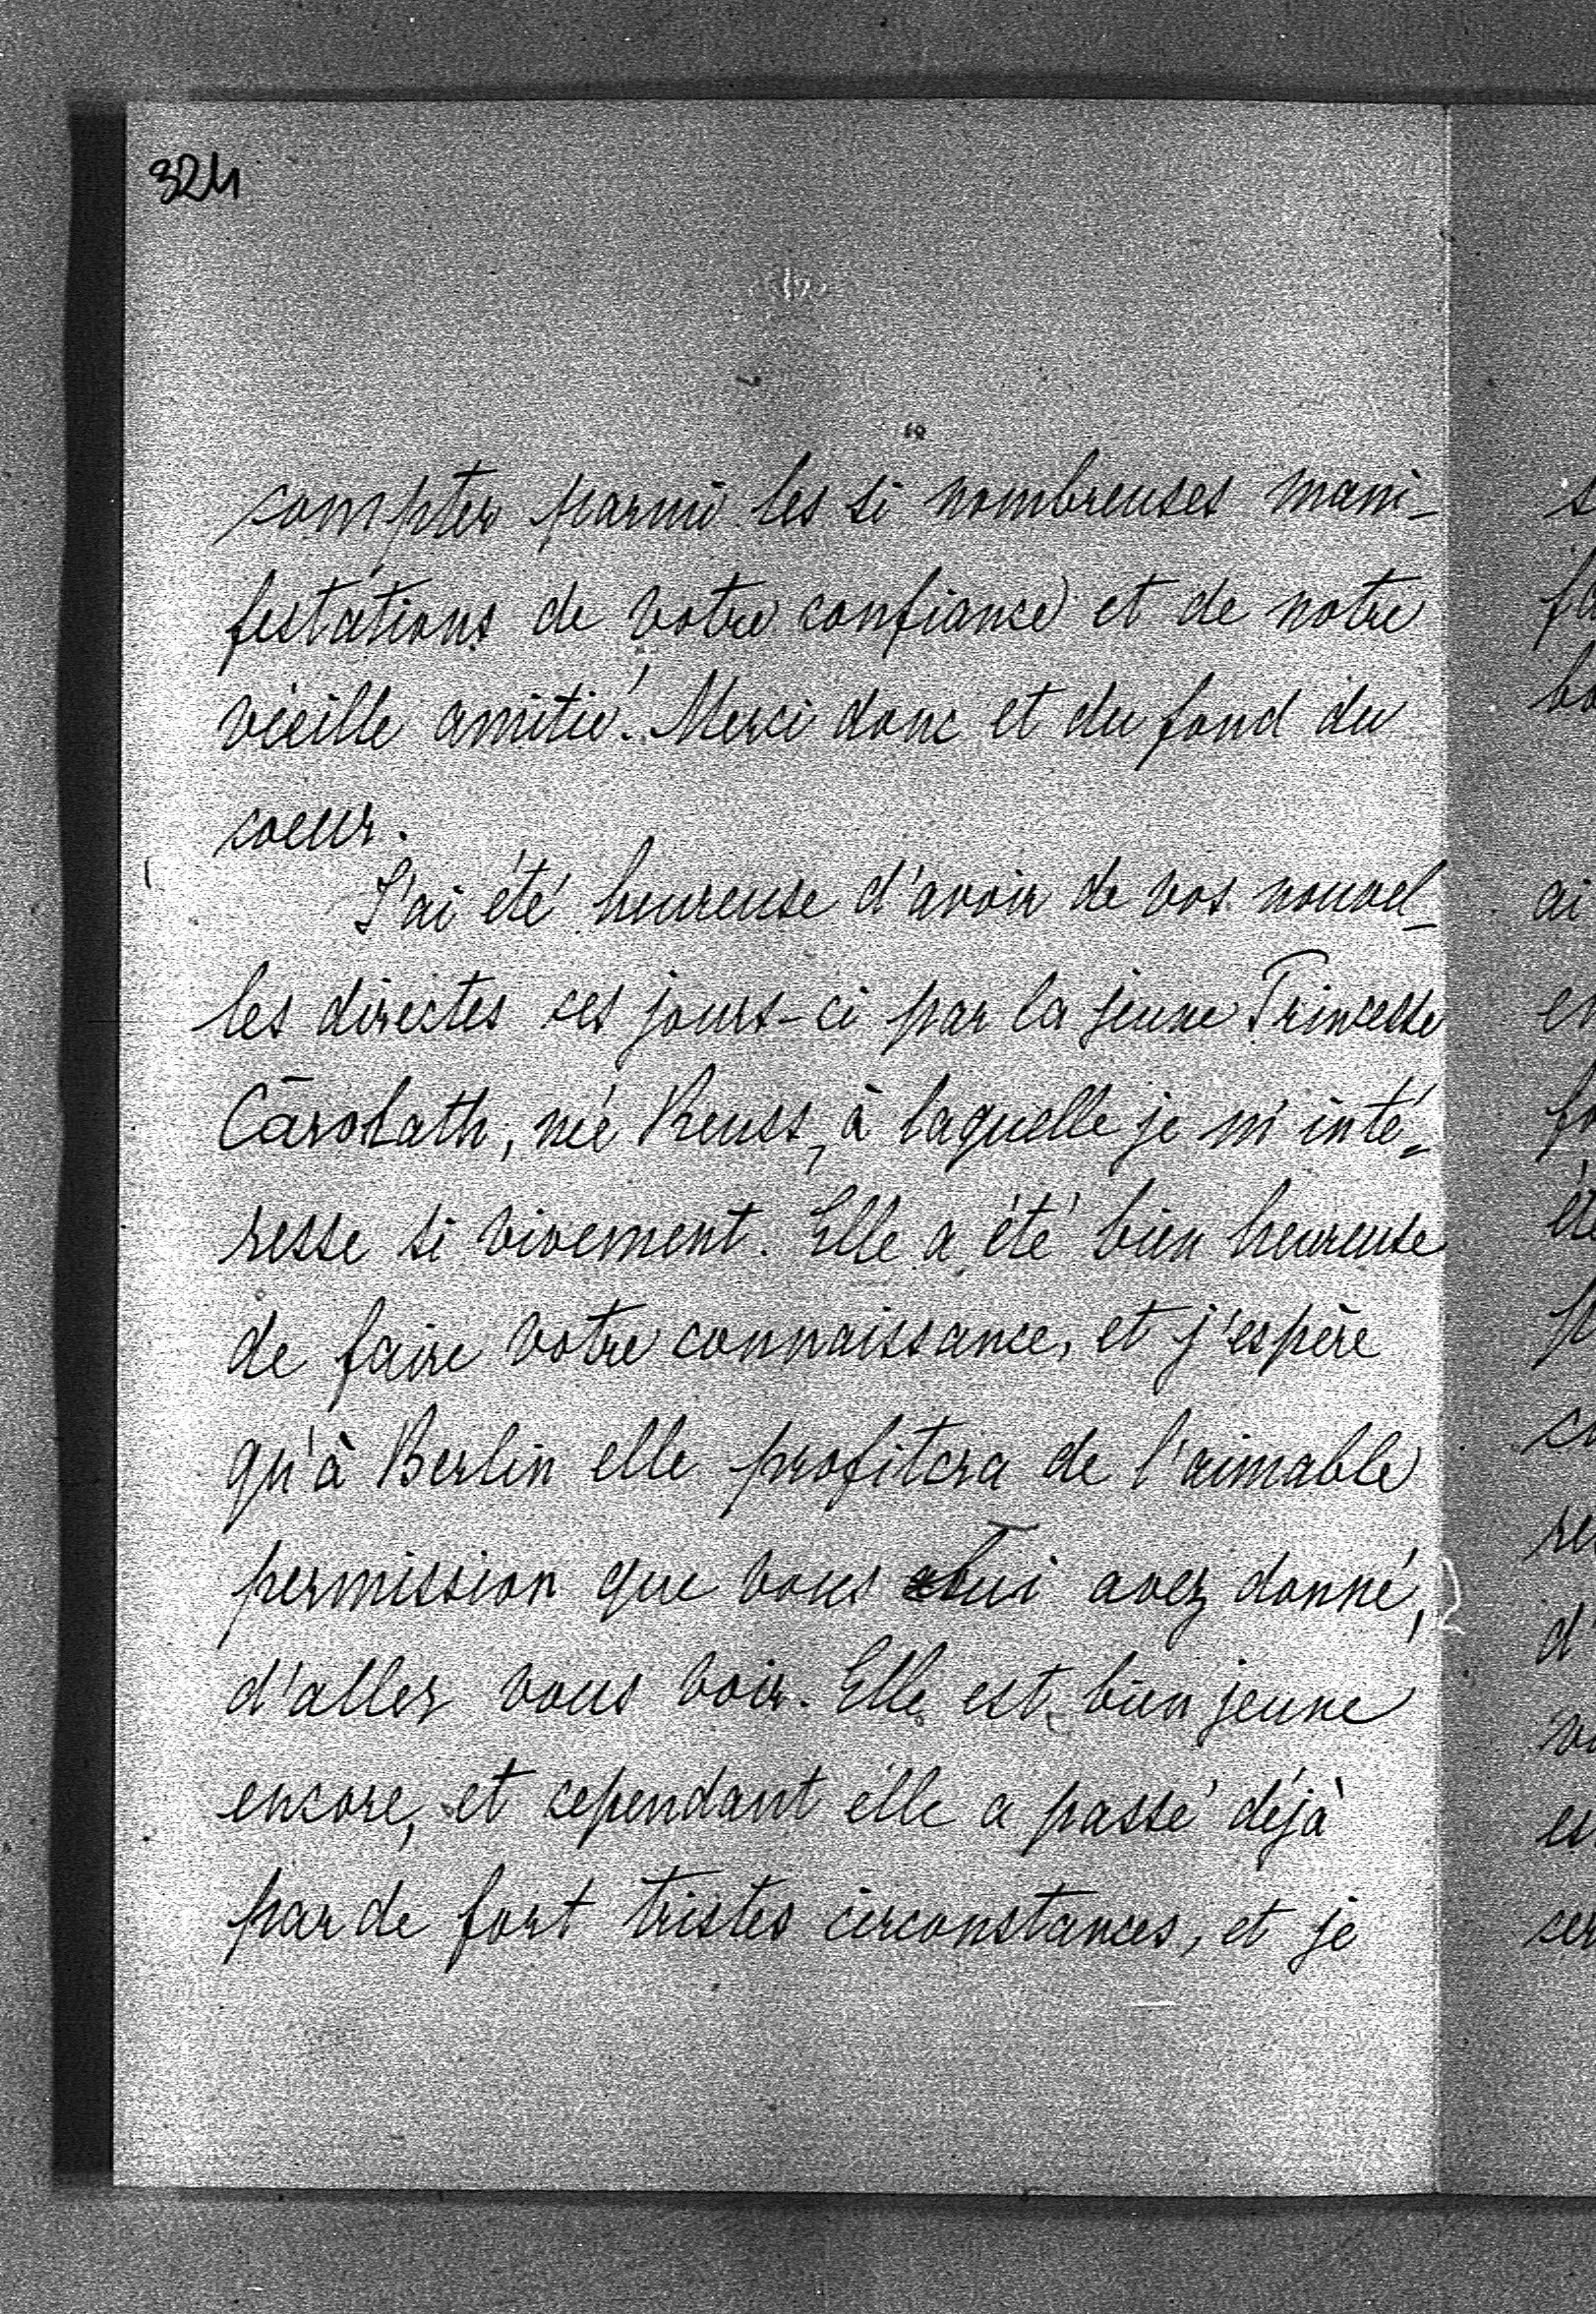 324
compter parmi les si nombreuses mani-
festations de votre confiance et de notre
vieille amitié. Merci donc et du fond du
coeur.
J'ai été heureuse d'avoir de vos nouvel-
les directes ces jours-ci par la jeune Princesse
Carolath, née Reuss, à laquelle je m'inté-
resse si vivement. Elle a été bien heureuse
de faire votre connaissance, et j'espère
qu'à Berlin elle profitera de l'aimable
permission que vous lui avez donné,
d'aller vous voir. Elle est bien jeune
encore, et cependant elle a passé déjà
par de fort tristes circonstances, et je